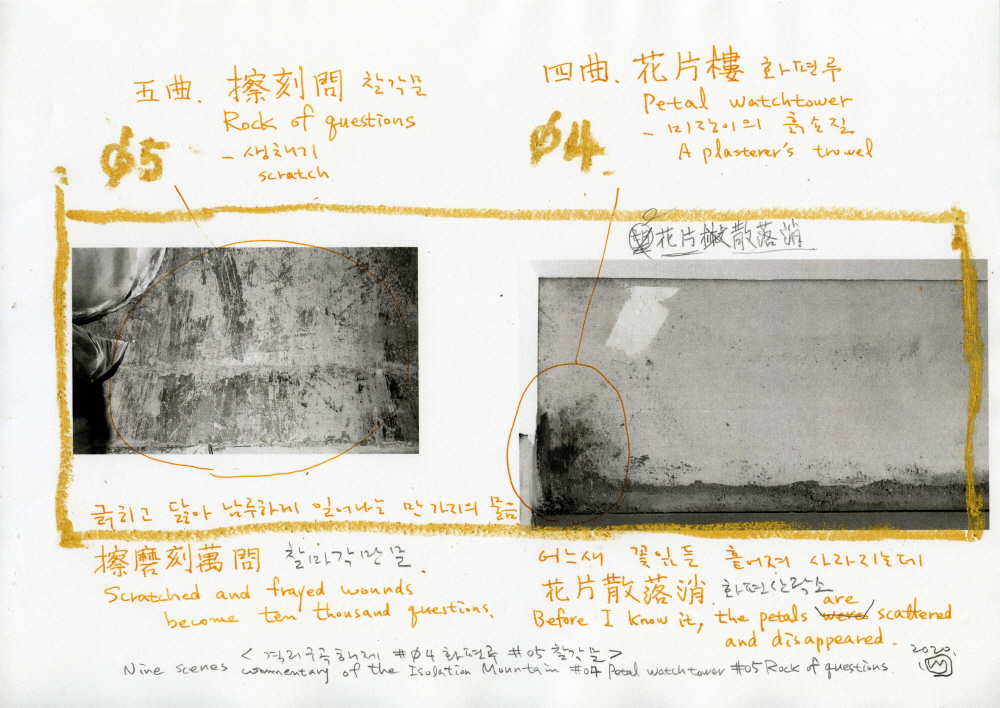 五曲. 擦刻問 찰각문
Rock of questions
- 생채기
scratch
Ø5
四曲. 花片樓 화편루
Petal watchtower
- 미장이의 흙손질
A plasterer's trowel
Ø4
花片散落消
긁히고 닳아 남루하게 일어나는 만 가지의 물음
擦磨刻萬問 찰마각만문.
Scratched and frayed wounds
become ten thousand questions.
어느새 꽃잎들 흩어져 사라지는데
花片散落消. 화편산락소
are
Before I know it, the petals were scattered
and disappeared.
<격리구곡해제 #Ø4 화편루 #Ø5 찰각문>
Nine scenes commentary of the Isolation Mountain #Ø4 Petal watchtower #Ø5 Rock of questions
2020.